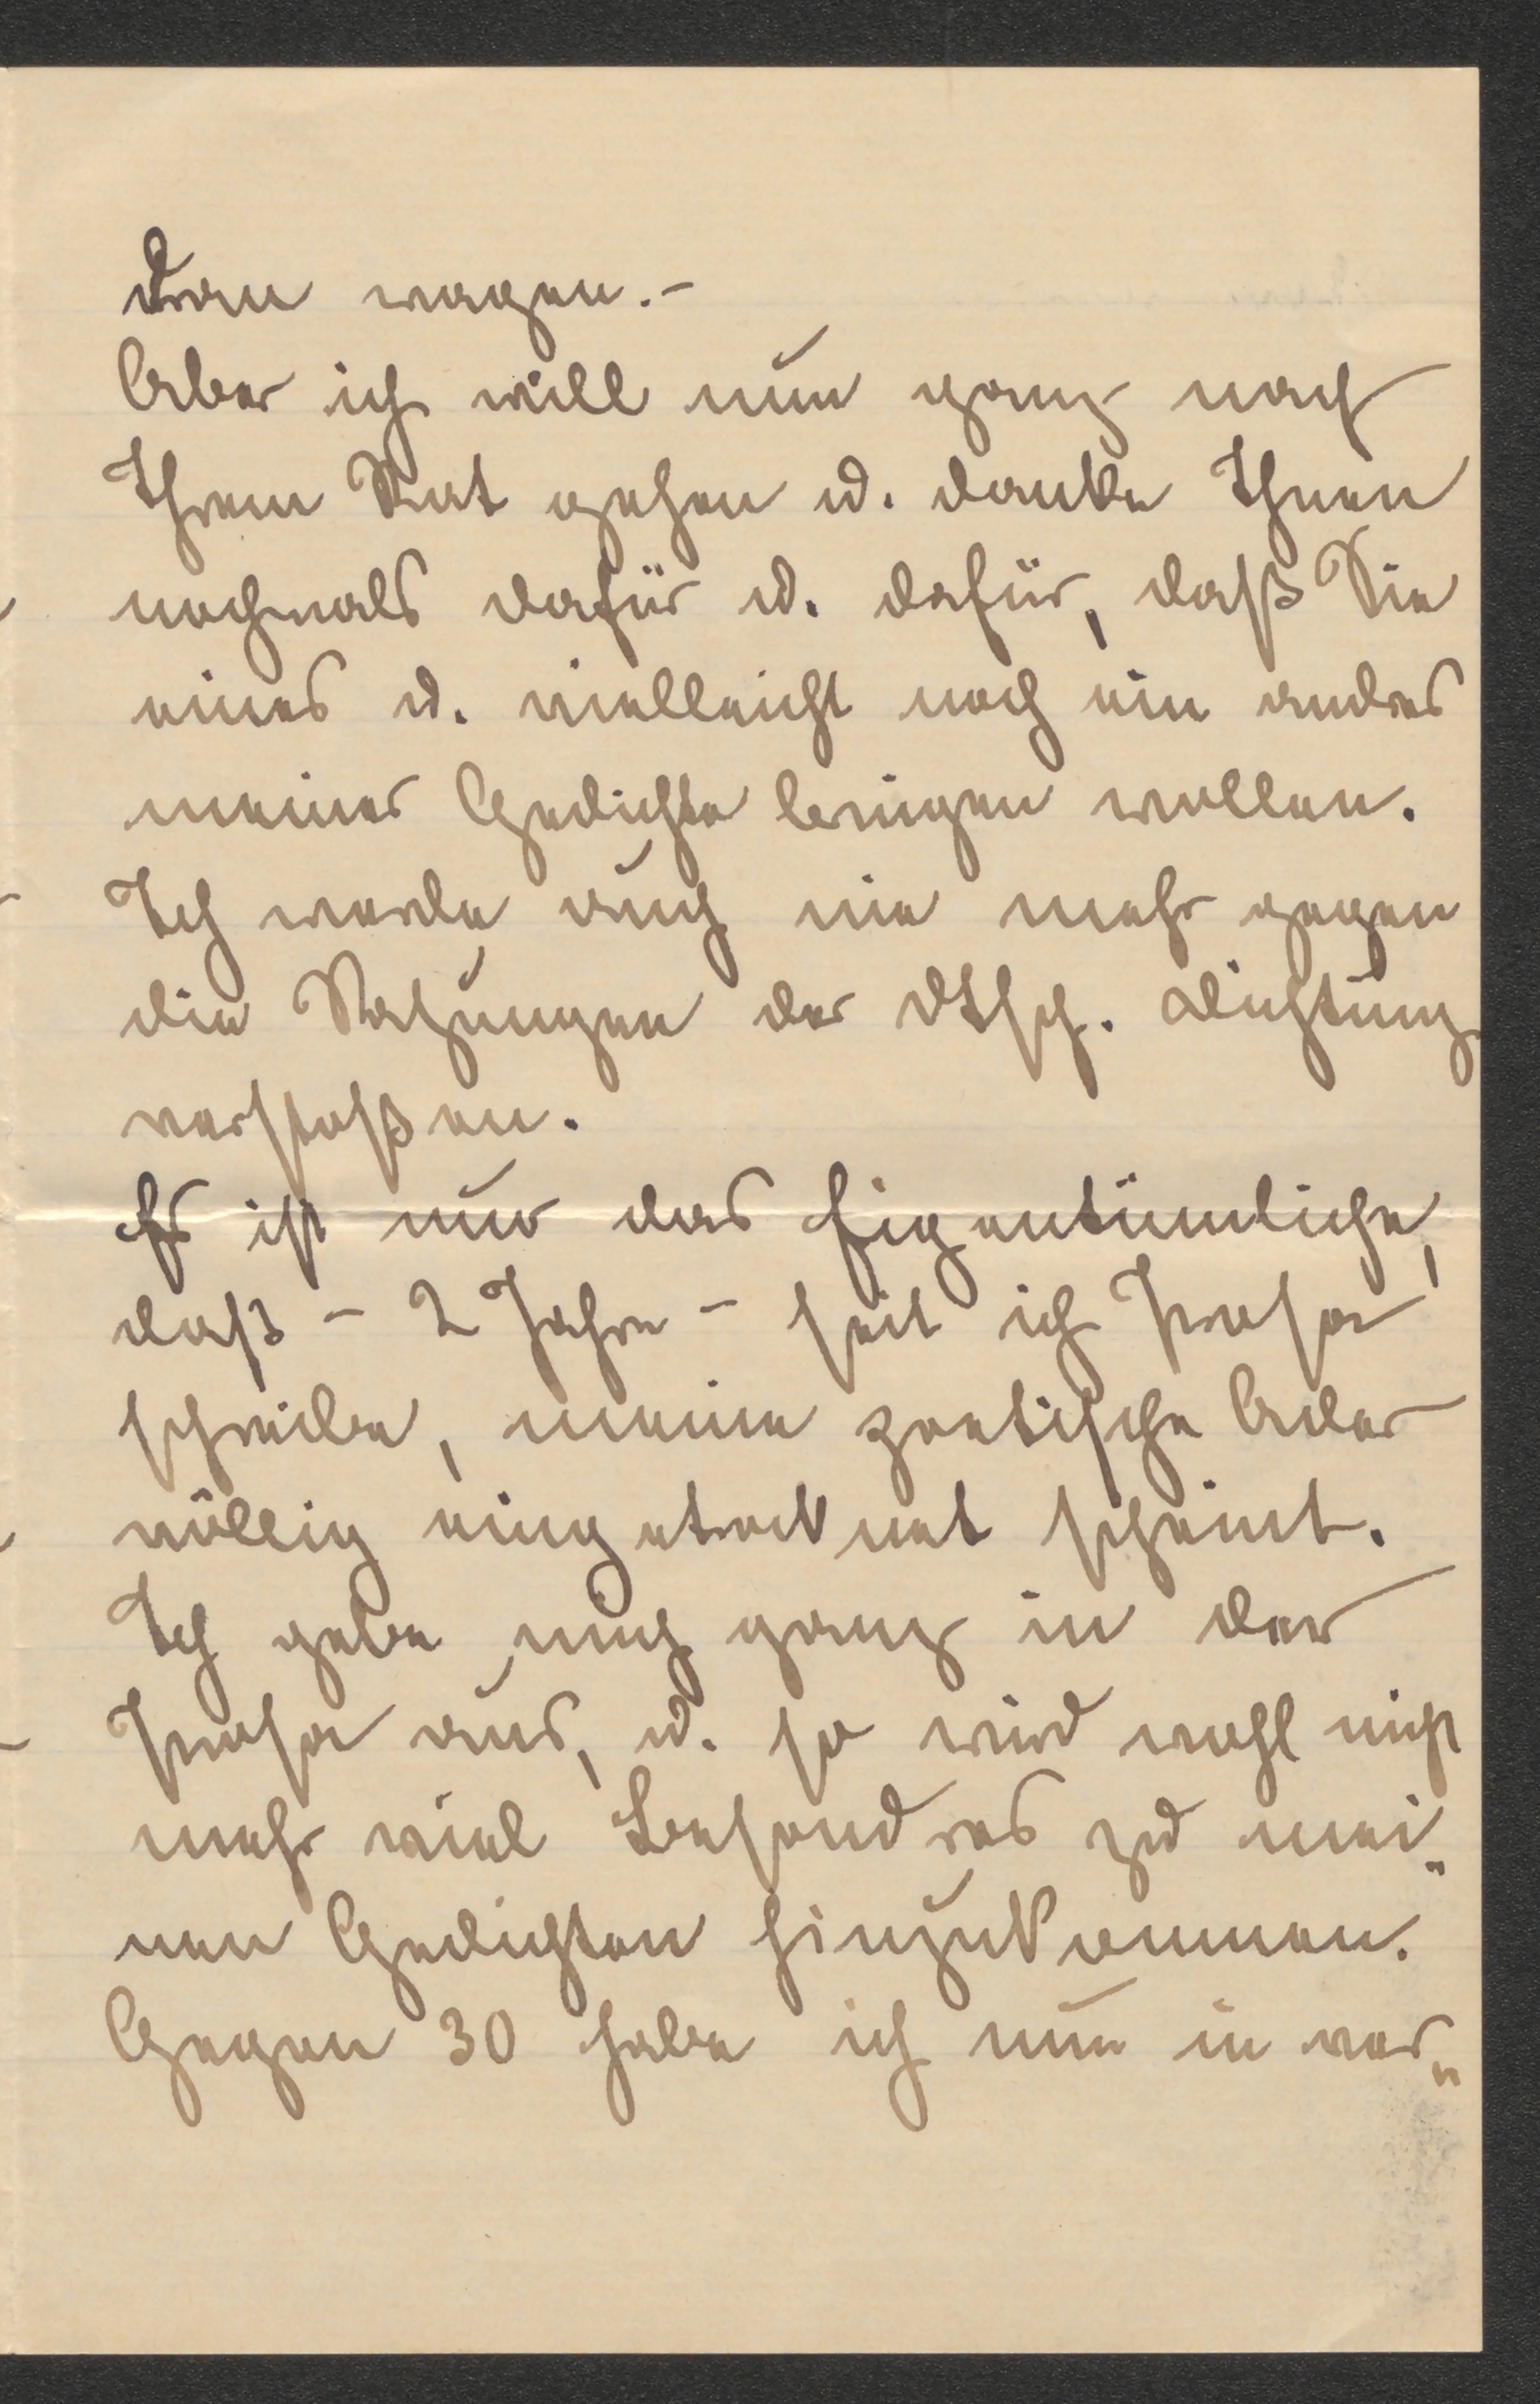 dran wagen. -
Aber ich will nun ganz nach
Ihrem Rat gehen u. danke Ihnen
nochmals dafür u. dafür, daß Sie
eines u. vielleicht noch ein andres
meiner Gedichte bringen wollen.
Ich werde auch nie mehr gegen
die Satzungen der Dtsch. Dichtung
verstoßen.
Es ist nur das Eigentümliche,
daß - 2 Jahre - seit ich Prosa
schreibe, meine poetische Ader
völlig eingetrocknet scheint.
Ich gebe mich ganz in der
Prosa aus, u. so wird wohl nicht
mehr viel Besondres zu mei„
nen Gedichten hinzukommen.
Gegen 30 habe ich nun in ver„